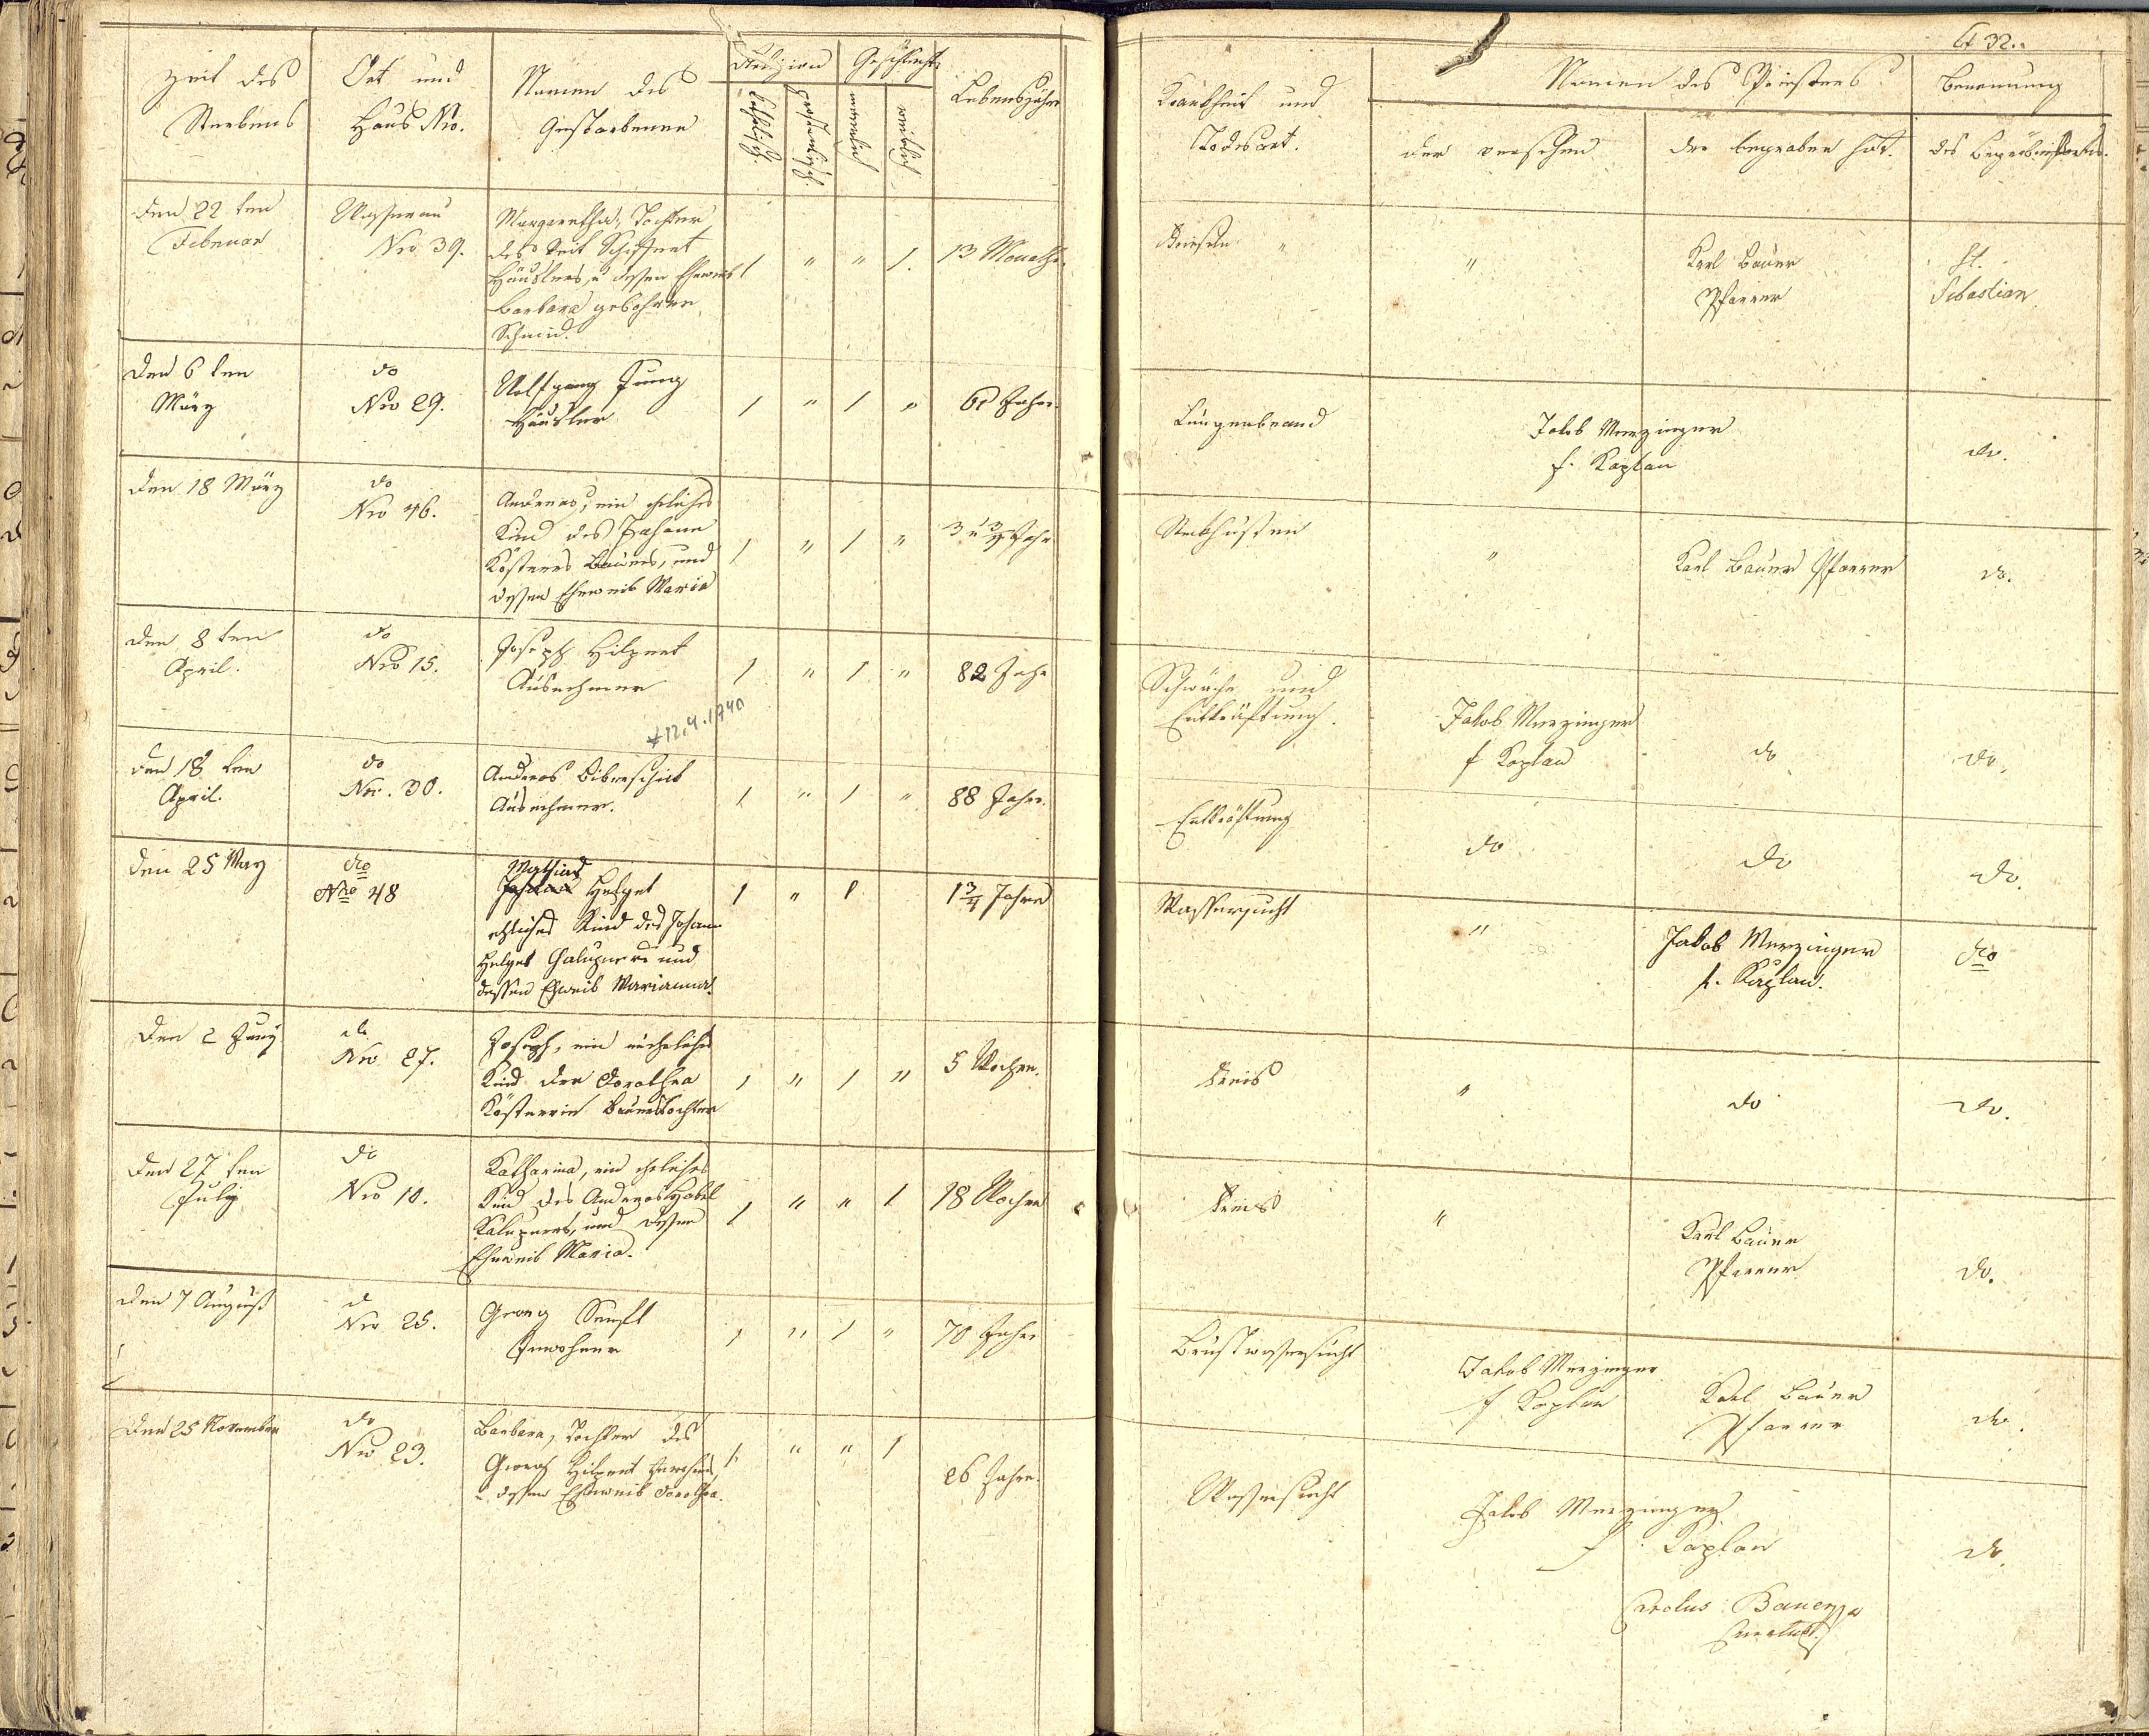 32.
Zeit des Sterbens
Ort und Haus Nro.
Namen des Gestorbenen
Religion
katholisch
protestantisch
Geschlecht
männlich
weiblich
Lebensjahre
Krankheit und Todesart.
Namen des Priesters
der versehen
der begraben hat.
Benennung des Begräbnißortes.
Den 22 ten Februar
Nro 39.
Margaretha, Tochter
des Veit
Häuslers, u dessen Eheweib
Barbara gebohrne
Schmid.
1 " " 1.
13 Monathe.
Friesen "
"
Karl Bauer
Pfarrer
St.
Sebastian
Den 6 ten März
do
Nro 29.
Wolfgang Jung
Häusler
1 " 1 "
61 Jahr.
Lungenbrand
Jakob Merzinger
f. Kaplan
do.
Den 18 März
do
Nro 46.
Andreas, ein eheliches
Kind des Johann
Kostners Bauers, und
dessen Eheweib Maria
1 " 1 "
3 u 3/4 Jahr
Steckhusten
"
Karl Bauer Pfarrer
do.
Den 8 ten April.
do
Nro 15.
Joseph Hilpert
Ausnehmer
1 " 1 "
82 Jahr
Schwäche und
Entkräftung.
Jakob Merzinger
f Kaplan
do
do.
* 12.4.1740
Den 18 ten April.
do
Nro. 30.
Andreas Biberschick
Ausnehmer.
1 " 1 "
88 Jahr.
Entkräftung
do
do
do.
Den 25 May
dto
Nro 48
Mathias
Johann Helget
ehliches Kind des Johann
Helget Chalupners und
dessen Eheweib Marianna.
1 " 1
1 3/4 Jahre
Wassersucht
"
Jakob Merzinger
f. Kaplan.
dto
Den 2 Juny
do
Nro 27.
Joseph, ein uneheliches
Kind der Dorothea
Kostnerin Bauerstochter
1 " 1 "
5 Wochen.
Freis
"
do
do.
Den 27 ten July
do
Nro 10.
Katharina, ein eheliches
Kind des Andreas Habel
Kalupners, und dessen
Eheweib Maria.
1 " " 1
18 Wochen
Freis
"
Karl Bauer
Pfarrer
do.
Den 7 August
do
Nro 25.
Georg Senft
Inwohner
1 " 1 "
70 Jahr
Brustwassersucht
Jakob Merzinger
f Kaplan
Karl Bauer
Pfarrer
do.
Den 25 November
do
Nro 23.
Barbara, Tochter des
Georg Hilpert
u dessen Eheweib Dorothea.
1 " " 1
26 Jahre.
Wassersucht
Jakob Merzinger
f. Kaplan
do.
Carolus Bauer
Curatus